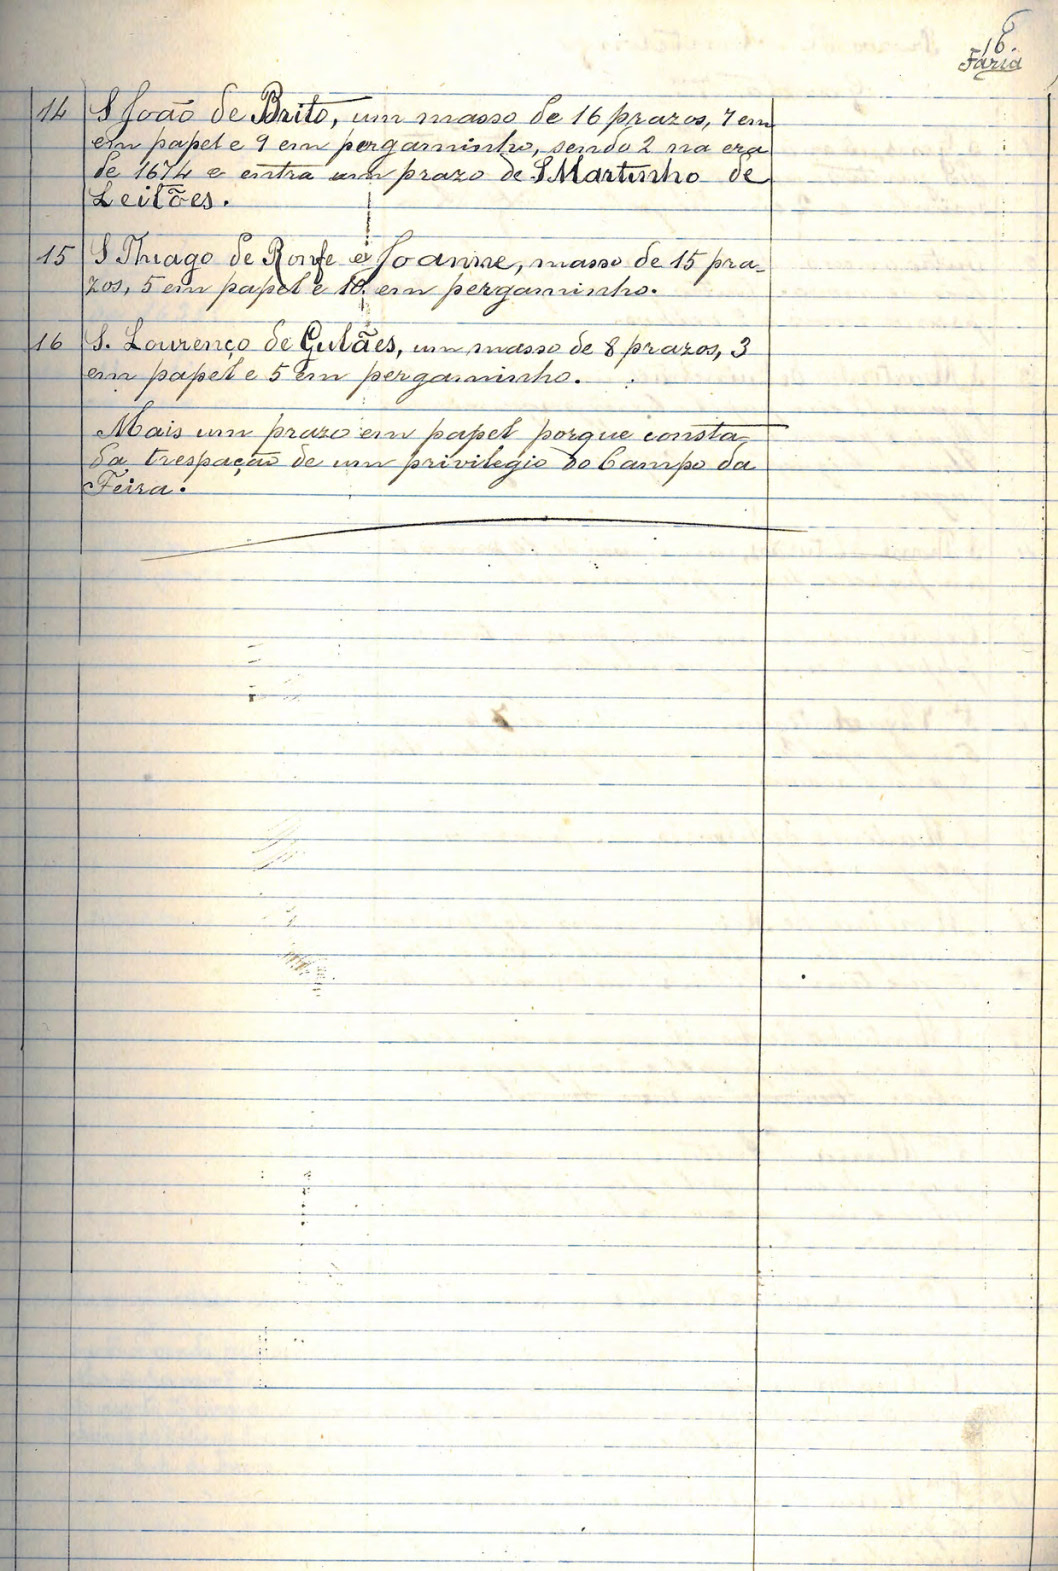 16.
Faria
14 S João de Brito, um masso de 16 prazos, 7 em
em papel e 9 em pergaminho, sendo 2 na era
de 1674 e entra um prazo de S Martinho de
Leitões.
15 S Thiago de Ronfe e Joanne, masso de 15 pra-
zos, 5 em papel e 10 em pergaminho.
16 S. Lourenço de Gulães, um masso de 8 prazos, 3
em papel e 5 em pergaminho.
Mais um prazo em papel porque consta
da trespaçação de um privilegio do Campo da
Feira.